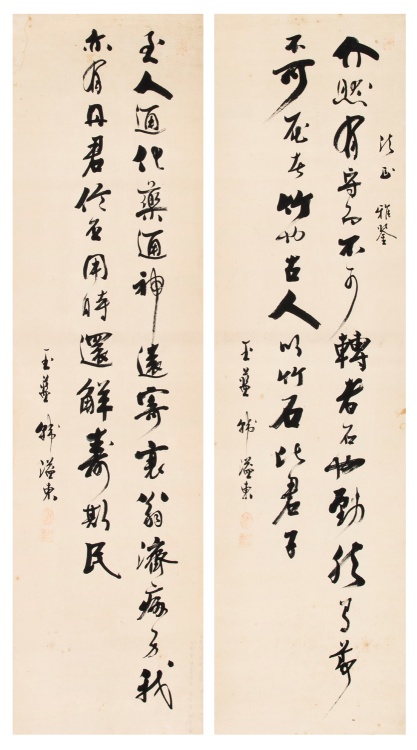 介然有守而不可轉者石也勁然節
不可屈者竹也古人以竹石比君子
雅鑒
韓溢東
至人通化藥通神遠寄衰翁濟病身我
亦有丹君信否用時還解壽斯民
韓溢東